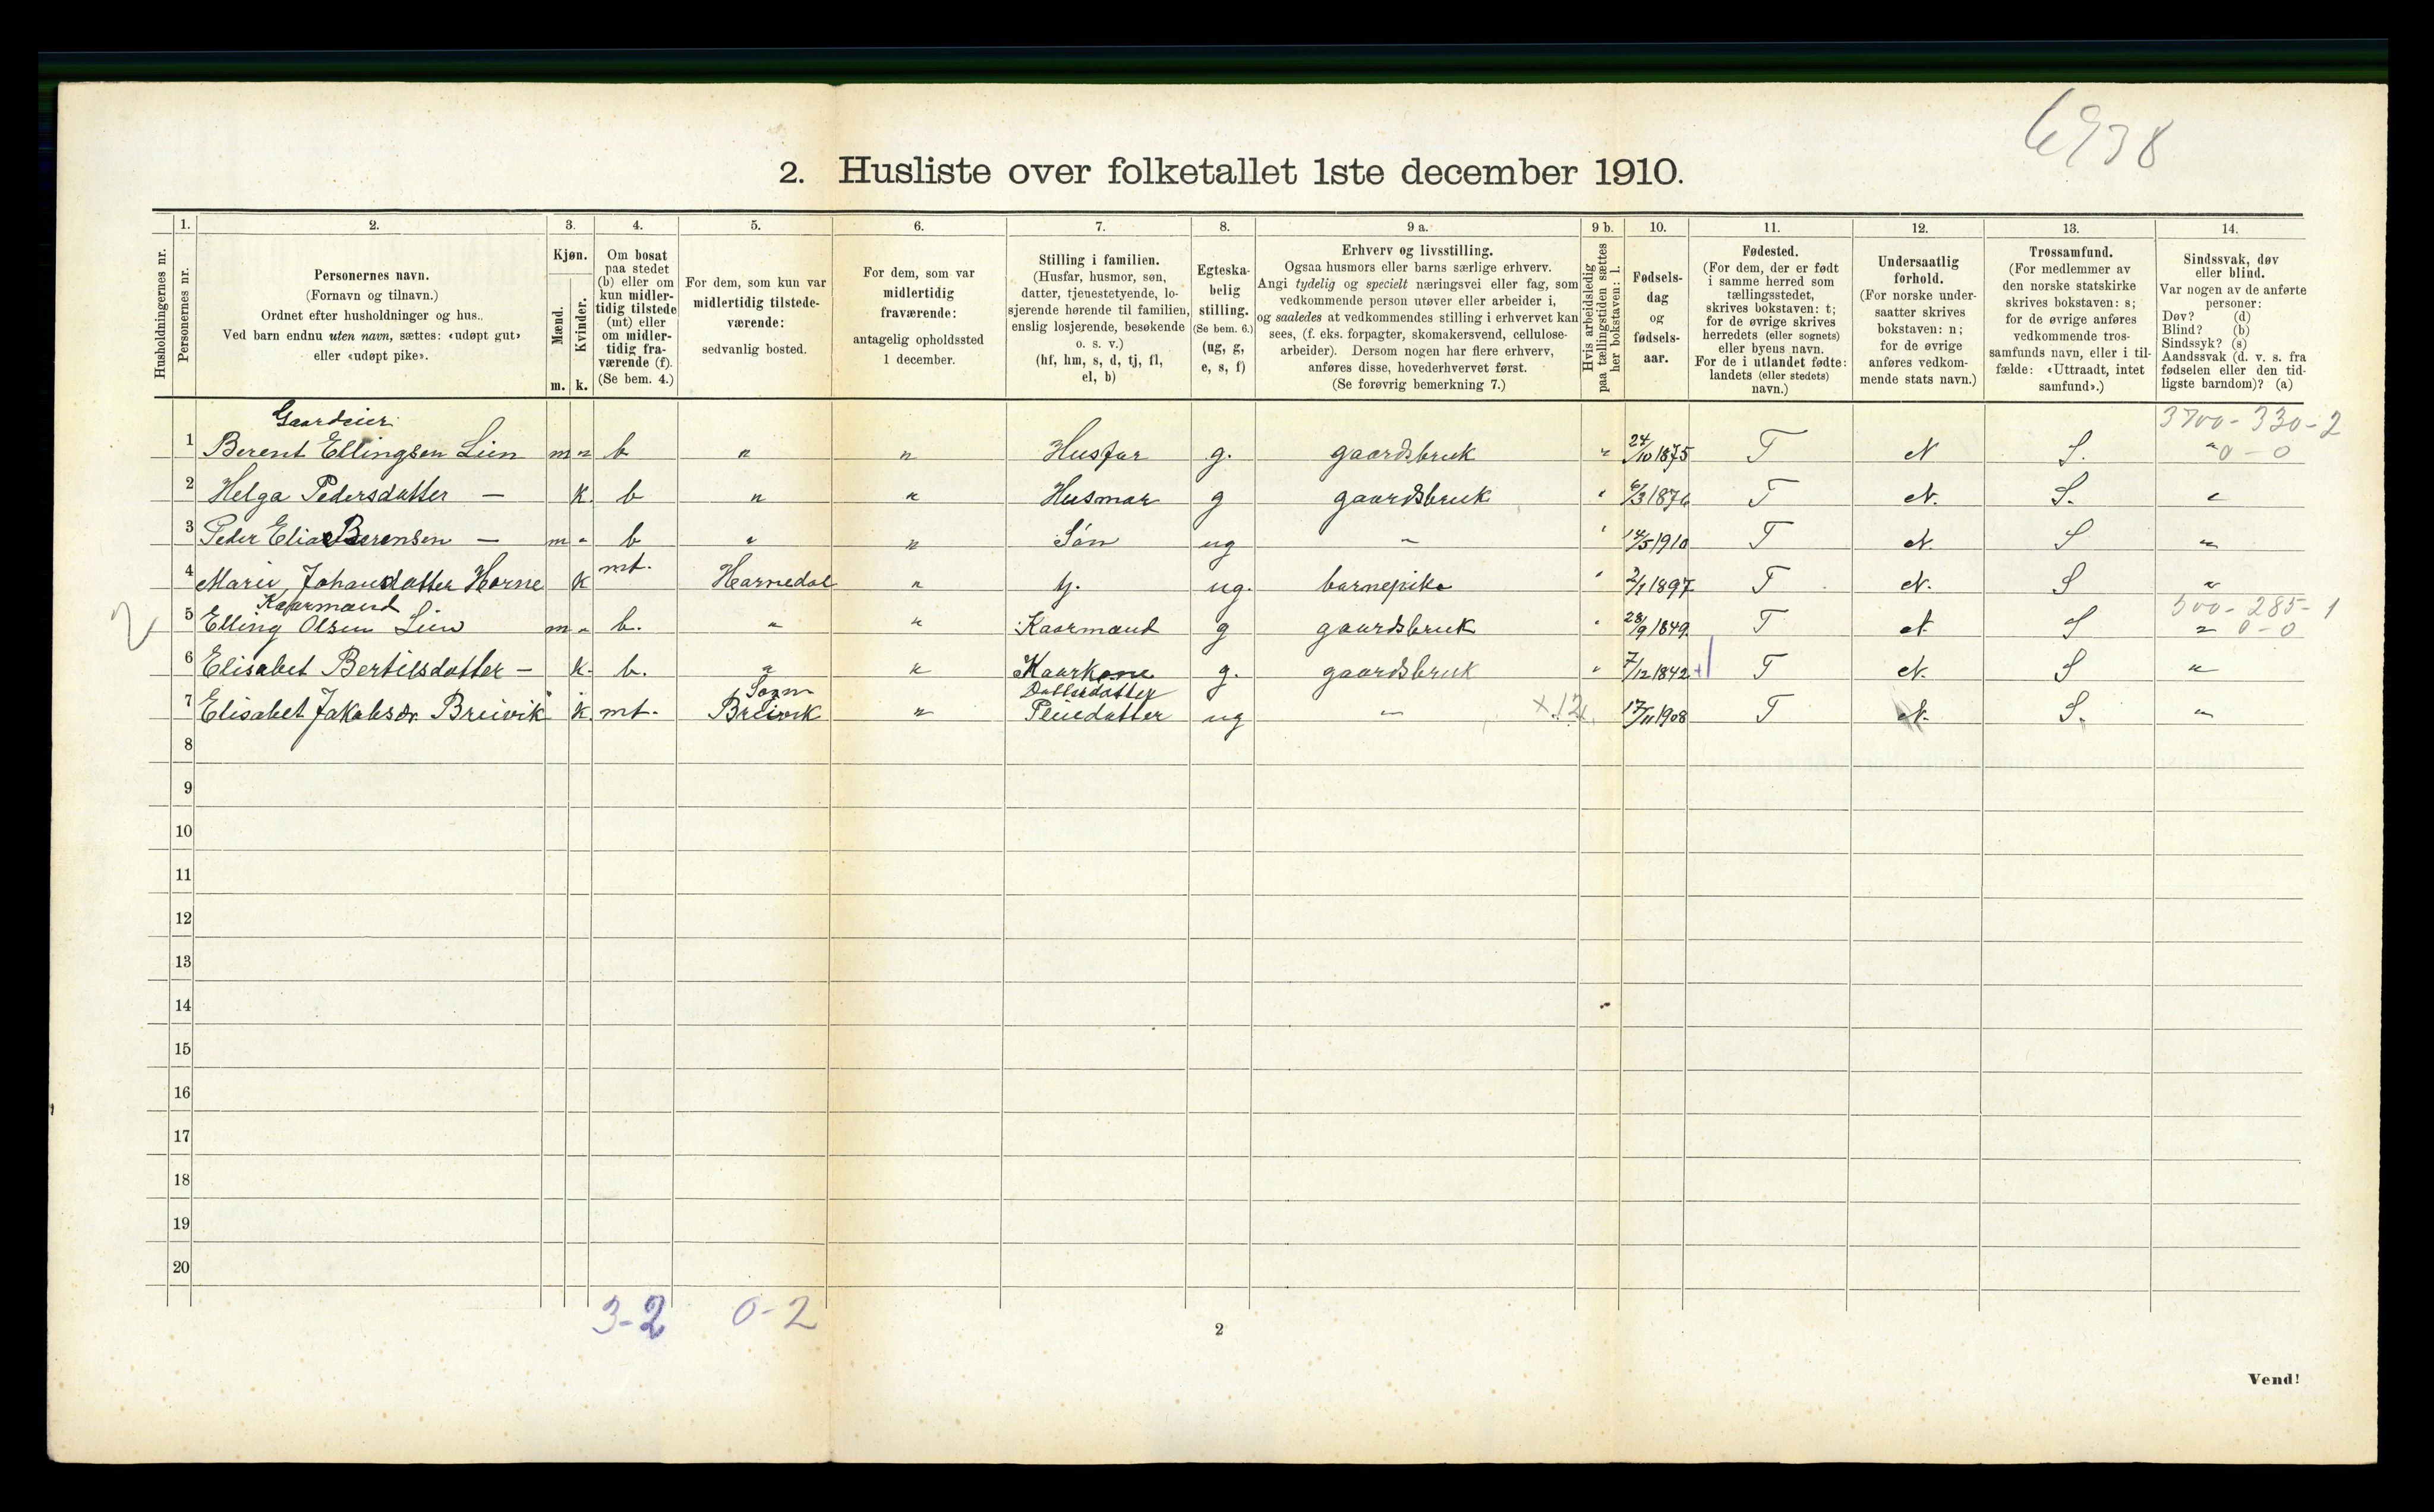 6938
2. Husliste over folketallet 1ste december 1910.
Husholdningernes nr.
1. Personernes nr.
2. Personernes navn. (Fornavn og tilnavn.) Ordnet efter husholdninger og hus. Ved barn endnu uten navn, sættes: «udøpt gut» eller «udøpt pike».
3. Kjøn. Mænd. m. Kvinder. k.
4. Om bosat paa stedet (b) eller om kun midlertidig tilstede (mt) eller om midlertidig fraværende (f). (Se bem. 4.)
5. For dem, som kun var midlertidig tilstedeværende: sedvanlig bosted.
6. For dem, som var midlertidig fraværende: antagelig opholdssted 1 december.
7. Stilling i familien. (Husfar, husmor, søn, datter, tjenestetyende, losjerende hørende til familien, enslig losjerende, besøkende o. s. v.) (hf, hm, s, d, tj, fl, el, b)
8. Egteskabelig stilling. (Se bem. 6.) (ug, g, e, s, f)
9 a. Erhverv og livsstilling. Ogsaa husmors eller barns særlige erhverv. Angi tydelig og specielt næringsvei eller fag, som vedkommende person utøver eller arbeider i, og saaledes at vedkommendes stilling i erhvervet kan sees, (f. eks. forpagter, skomakersvend, cellulosearbeider). Dersom nogen har flere erhverv, anføres disse, hovederhvervet først. (Se forøvrig bemerkning 7.)
9 b. Hvis arbeidsledig paa tællingstiden sættes her bokstaven: l.
10. Fødselsdag og fødselsaar.
11. Fødested. (For dem, der er født i samme herred som tællingsstedet, skrives bokstaven: t; for de øvrige skrives herredets (eller sognets) eller byens navn. For de i utlandet fødte: landets (eller stedets) navn.)
12. Undersaatlig forhold. (For norske undersaatter skrives bokstaven: n; for de øvrige anføres vedkommende stats navn.)
13. Trossamfund. (For medlemmer av den norske statskirke skrives bokstaven: s; for de øvrige anføres vedkommende trossamfunds navn, eller i tilfælde: «Uttraadt, intet samfund».)
14. Sindssvak, døv eller blind. Var nogen av de anførte personer: Døv? (d) Blind? (b) Sindssyk? (s) Aandssvak (d. v. s. fra fødselen eller den tidligste barndom)? (a)
Gaardeier 3700-330-2
1 Berent Ellingsen Lien m " b " " Husfar g. gaardsbruk " 24/10 1875 T N S. " 0-0
2 Helga Pedersdatter — k. b " " Husmor g gaardsbruk " 6/3 1876 T N. S. "
3 Peder Elias Berensen — m " b " " Søn ug " " 14/5 1910 T N. S "
4 Marie Johansdatter Horne k mt. Hornedal " tj. ug. barnepike " 2/1 1897 T N. S "
Kaarmand 500-285-1
2 5 Elling Olsen Lien m " b. " " Kaarmand g gaardsbruk " 28/9 1849 T N S " 0-0
6 Elisabet Bertilsdatter — k. b. " " Kaarkone g. gaardsbruk " 7/12 1842 T N. S "
Datterdatter
7 Elisabet Jakobsdr. Breivik k mt. Breivik " Pleiedatter ug " x.12 17/11 1908 T N. S. "
8
9
10
11
12
13
14
15
16
17
18
19
20
3-2 0-2
2
Vend!